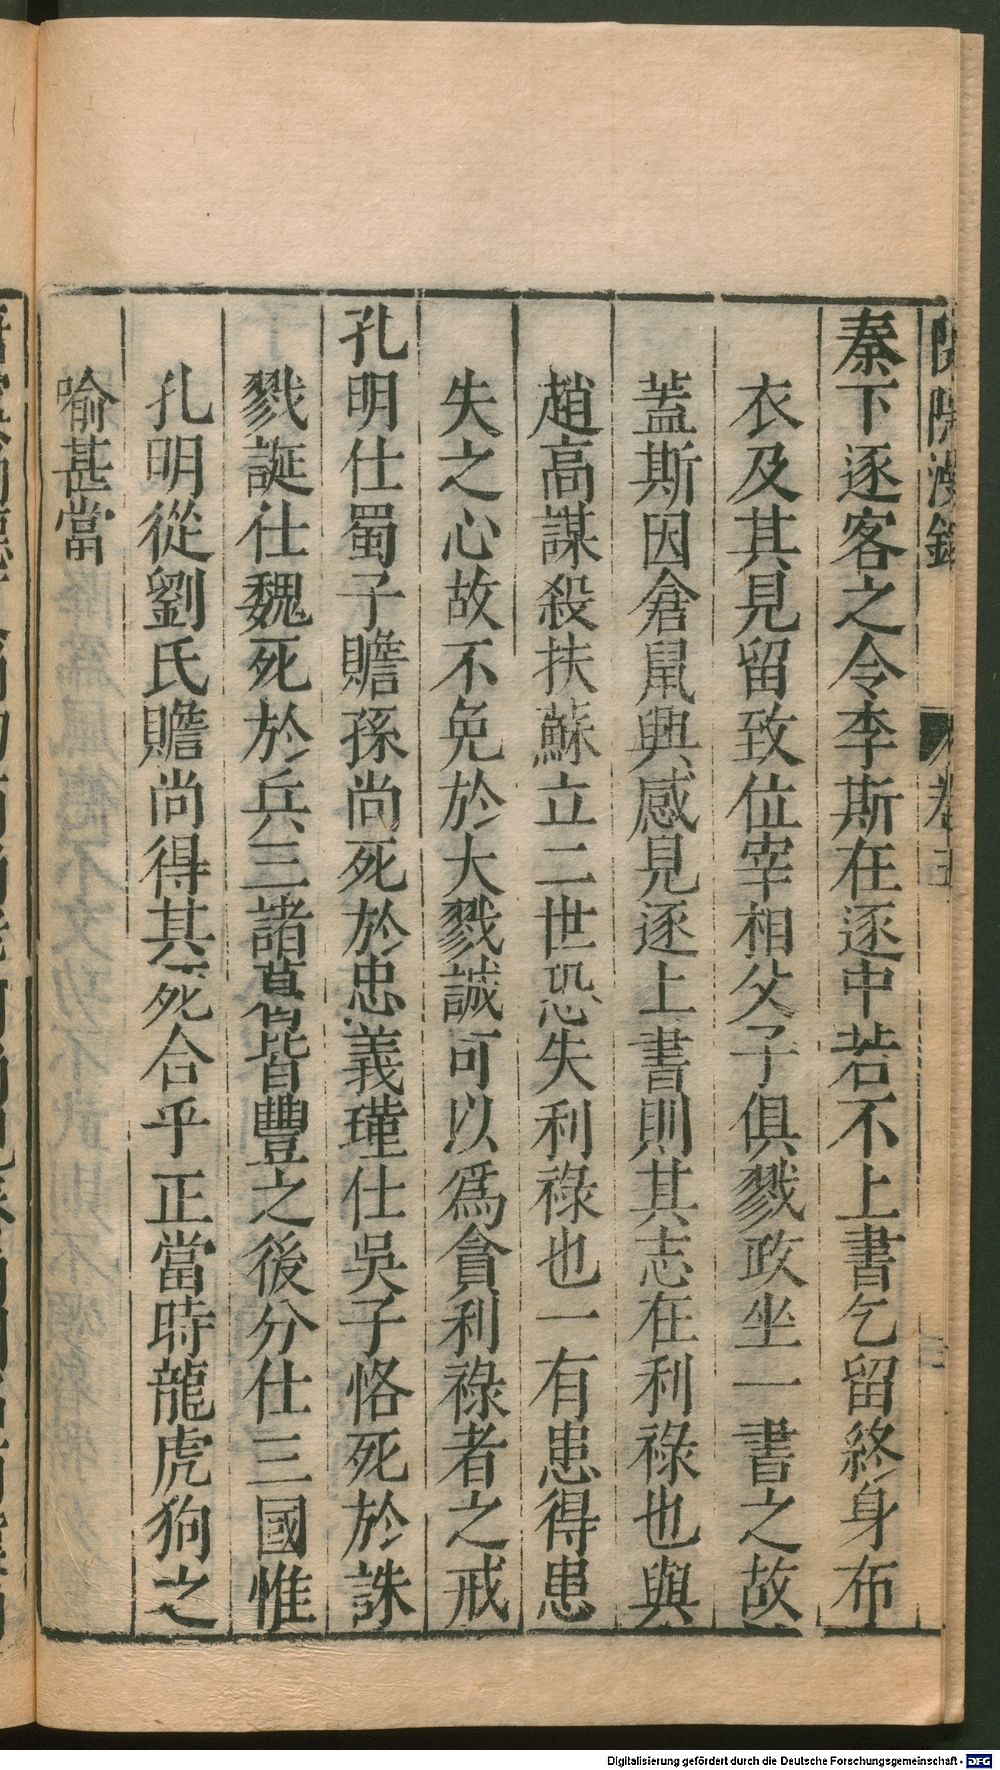 秦下逐客之令李斯在逐中若不上書乞留終身布
衣及其見留致位宰相父子俱戮政坐一書之故
蓋斯因倉鼠興感見逐上書則其志在利祿也與
趙高謀殺扶蘇立二世恐失利祿也一有患得患
失之心故不免於大戮誠可以為貪利祿者之戒
孔明仕蜀子瞻孫尚死於忠義瑾仕吳子恪死於誅
戮誕仕魏死於兵三諸葛皆豐之後分仕三國惟
孔明從劉氏瞻尚得其死合乎正當時龍虎狗之
喻甚當
Digitalisierung gefördert durch die Deutsche Forschungsgemeinschaft - DFG